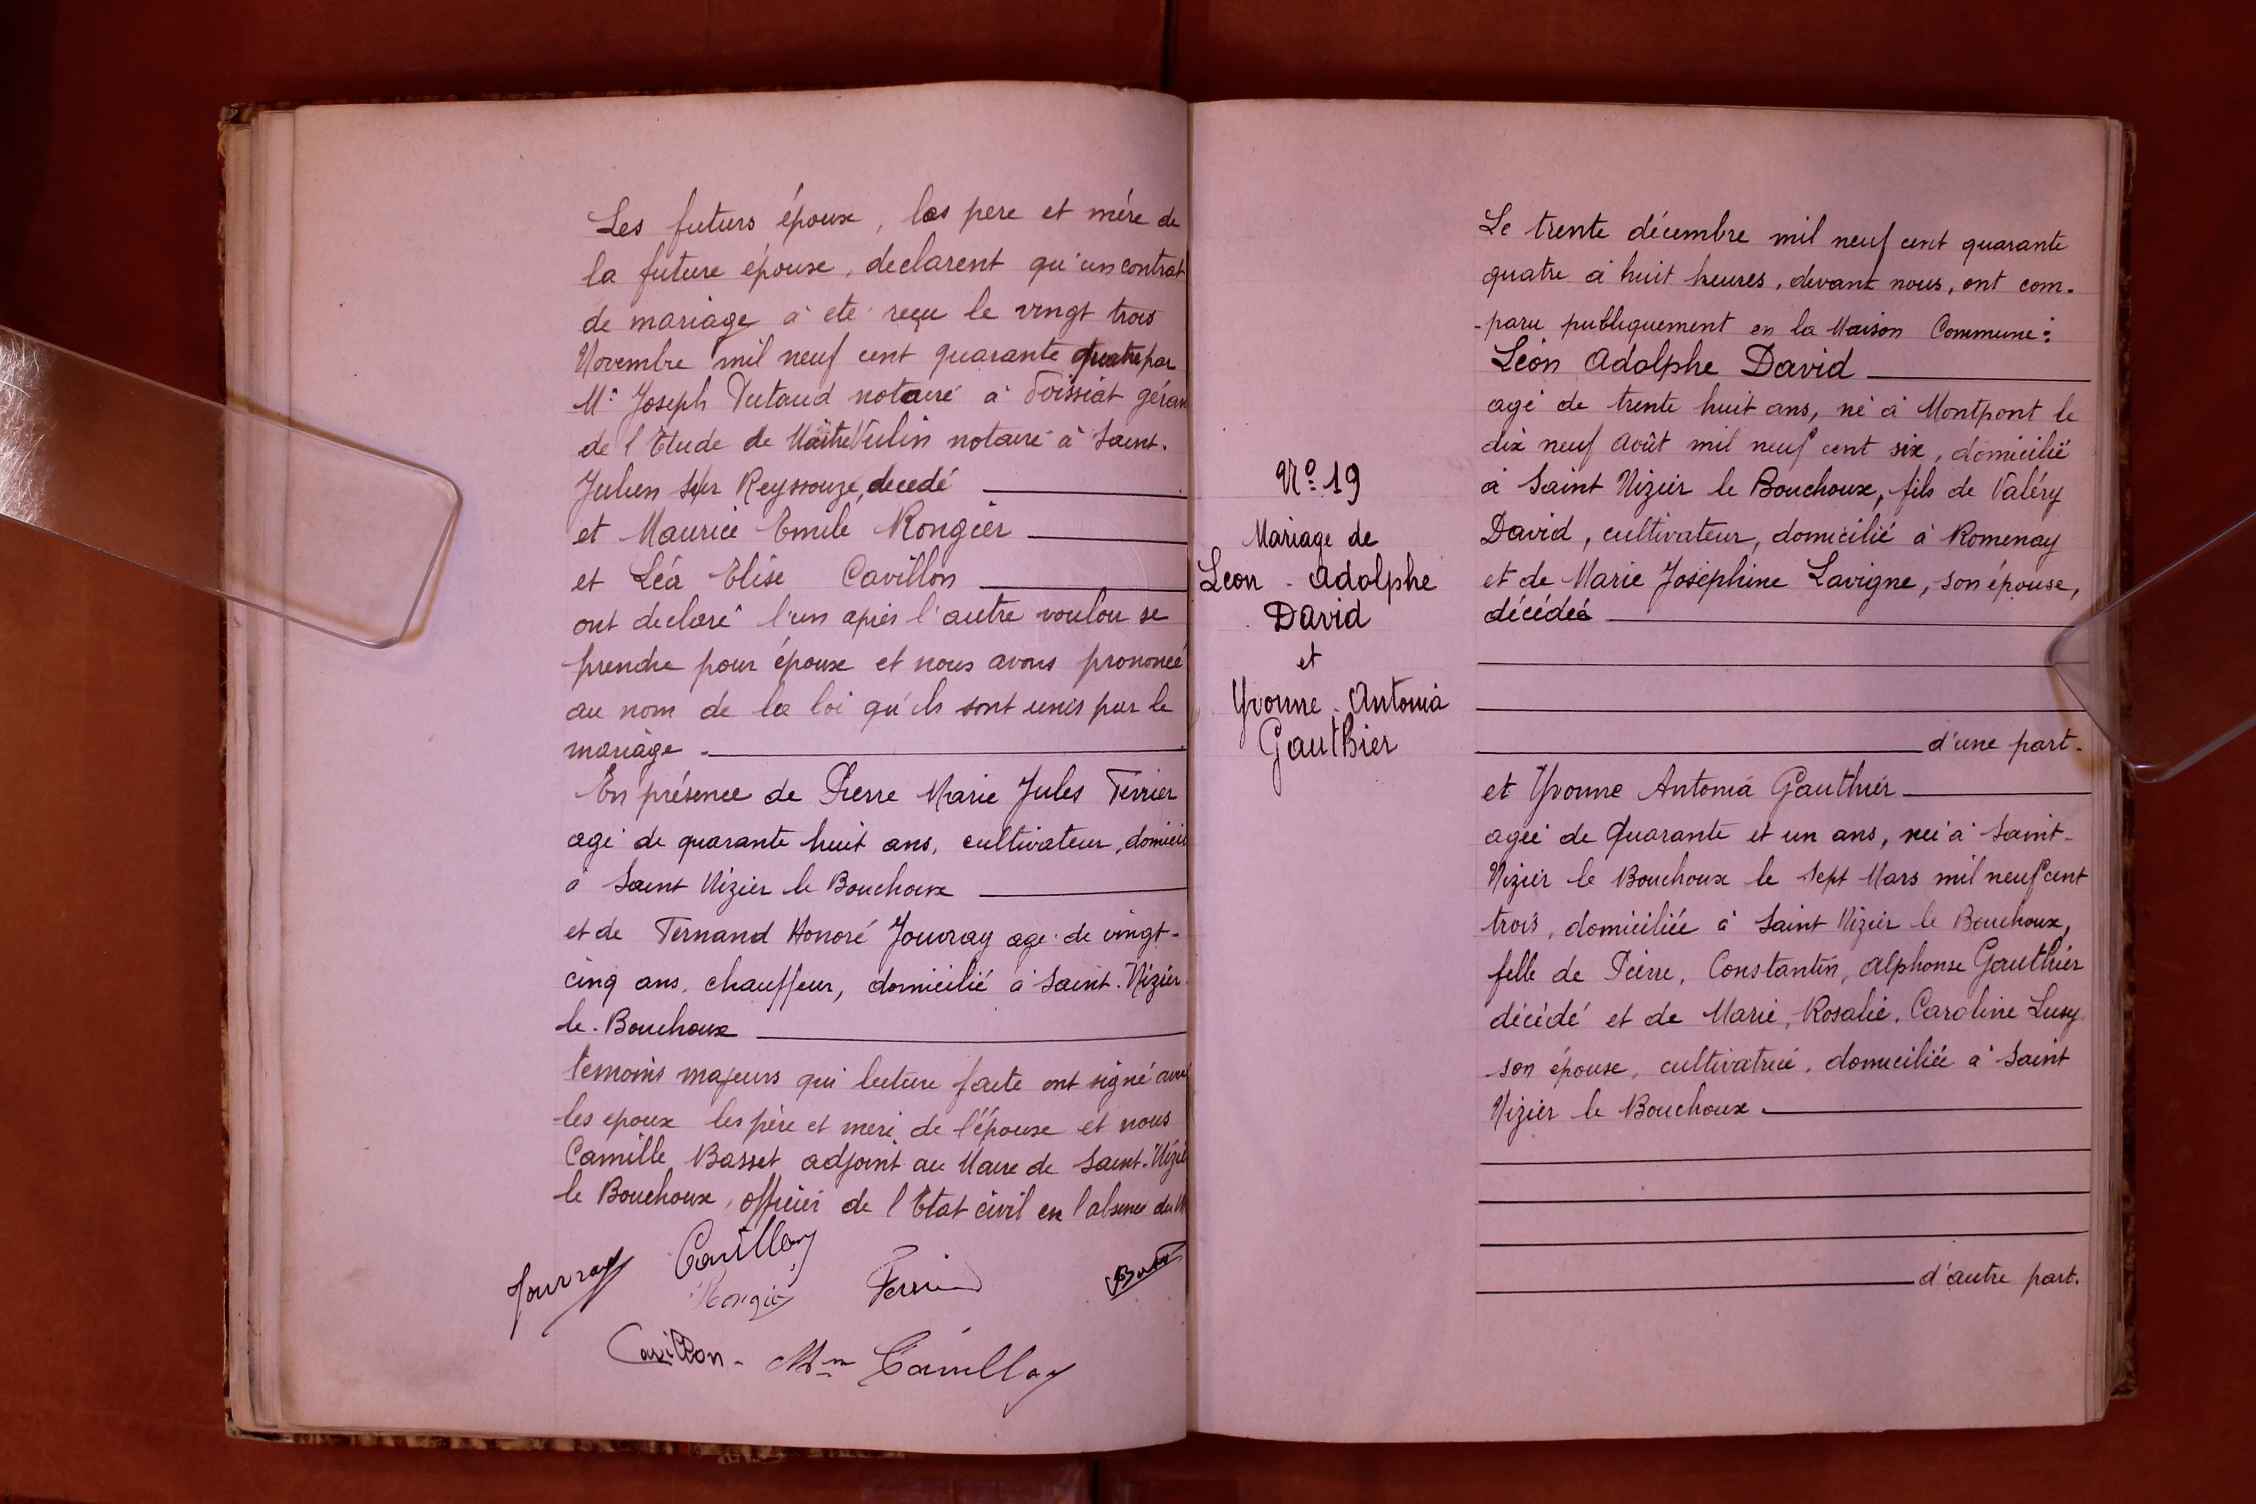 Les futurs époux, les pere et mére de
la future épouse, declarent qu'un contrat
de mariage à eté reçu le vingt trois
Novembre mil neuf cent quarante quatre par
Me Joseph Dutaud notaire à Foissiat géran
de l'Etude de Maître Vulin notaire à Saint-
Julien sur Reyssouze, decedé
et Maurice Emile Rongier
et Léa Elise Cavillon
ont declaré l'un après l'autre vouloir se
prendre pour époux et nous avons prononcé
au nom de la loi qu'ils sont unis par le
mariage -
En présence de Pierre Marie Jules Terrier
agé de quarante huit ans, cultivateur, domicil
à Saint Nizier le Bouchoux
et de Fernand Honoré Jouvray age de vingt-
cinq ans, chauffeur, domicilié à Saint-Nizier
le-Bouchoux
temoins majeurs qui lecture faite ont signé avec
les epoux les père et mere de l'épouse et nous
Camille Basset adjoint au Maire de Saint-Nizie
le Bouchoux, officier de l'Etat civil en l'absence du M
Jouvray Cavillon
Rongier
Cavillon - Mme Cavillon
Nº 19
Mariage de
Leon - Adolphe
David
et
Yvonne - Antonia
Gauthier
Le trente décembre mil neuf cent quarante
quatre à huit heures, devant nous, ont com-
-paru publiquement en la Maison Commune :
Léon Adolphe David
agé de trente huit ans, né à Montpont le
dix neuf Août mil neuf cent six, domicilié
à Saint Nizier le Bouchoux, fils de Valéry
David, cultivateur, domicilié à Romenay
et de Marie Joséphine Lavigne, son épouse,
décédée
d'une part.
et Yvonne Antonia Gauthier
agée de Quarante et un ans, née à Saint-
Nizier le Bouchoux le sept Mars mil neuf cent
trois, domiciliée à Saint Nizier le Bouchoux,
fille de Pierre, Constantin, Alphonse Gauthier
décédé et de Marie, Rosalie, Caroline Lusy
son épouse, cultivatrice, domiciliée à Saint
Nizier le Bouchoux
d'autre part.